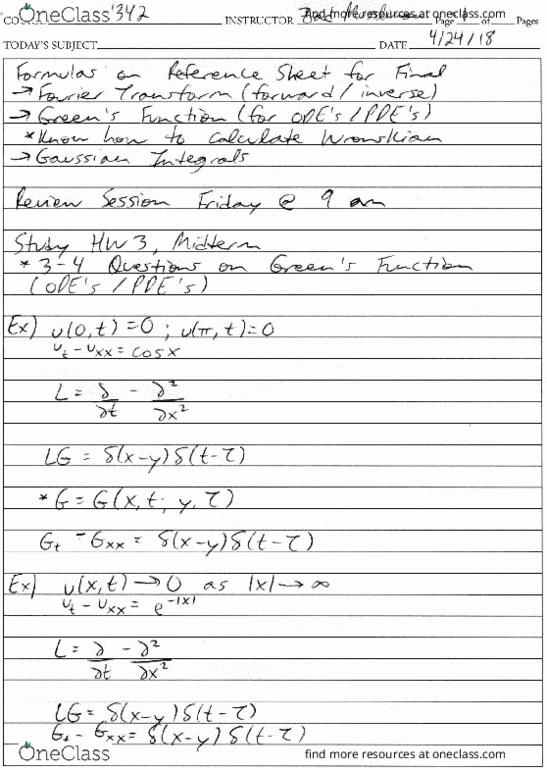 OneClass 342 INSTRUCTOR find more resources at oneclass.com Page 1 of Pages
TODAY'S SUBJECT DATE 4/24/18
Formulas on Reference Sheet for Final
→ Fourier Transform (forward / inverse)
→ Green's Function (for ODE's / PDE's)
* Know how to calculate Wronskian
→ Gaussian Integrals
Review Session Friday @ 9 am
Study HW 3, Midterm
* 3-4 Questions on Green's Function
(ODE's / PDE's)
Ex) u(0,t) = 0 ; u(π,t) = 0
u_t - u_xx = cos x
L = ∂/∂t - ∂²/∂x²
LG = δ(x-y)δ(t-τ)
* G = G(x,t; y,τ)
G_t - G_xx = δ(x-y)δ(t-τ)
Ex) u(x,t) → 0 as |x| → ∞
u_t - u_xx = e^-|x|
L = ∂/∂t - ∂²/∂x²
LG = δ(x-y)δ(t-τ)
G_t - G_xx = δ(x-y)δ(t-τ)
OneClass find more resources at oneclass.com